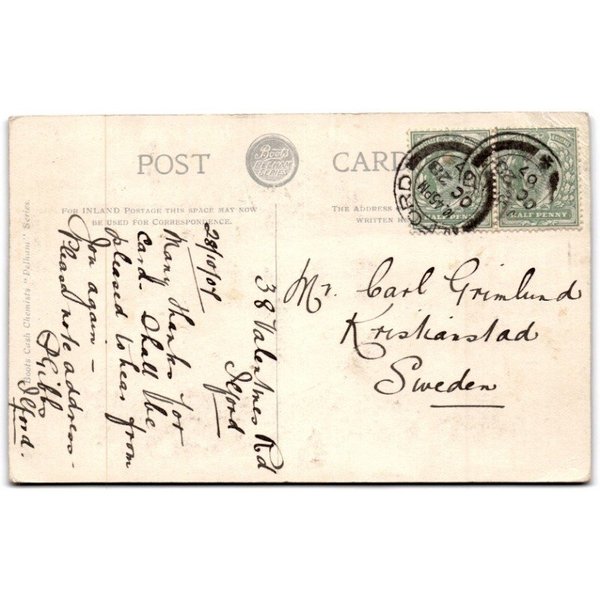 POST CARD
Boots
FOR INLAND POSTAGE THIS SPACE MAY NOW
BE USED FOR CORRESPONDENCE.
THE ADDRESS
WRITTEN
38 Valentines Rd
Ilford
28/10/07
Many thanks for
card. Shall be
pleased to hear from
you again –
Please note address –
Gibbs
Ilford.
Mr. Carl Grimlund
Kristianstad
Sweden
Boots Cash Chemists "Pelham" Series.
HALF PENNY
HALF PENNY
ILFORD
OC 28
07
OC 28
07